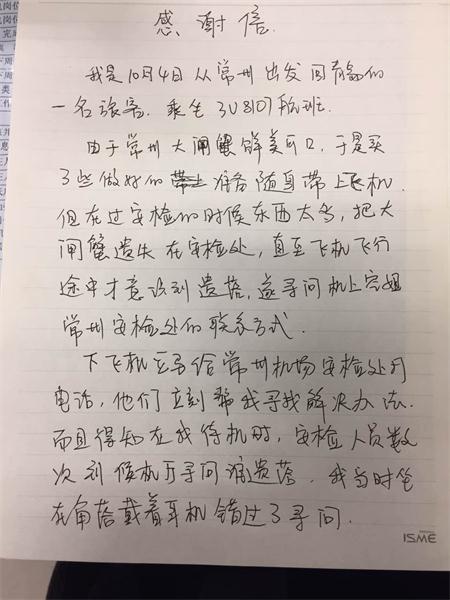 感谢信.
我是10月4日从常州出发回青岛的
一名旅客. 乘坐3U8107航班.
由于常州大闸蟹鲜美可口, 于是买
了些做好的准备随身带上飞机.
但在过安检的时候东西太多, 把大
闸蟹遗失在安检处, 直至飞机飞行
途中才意识到遗落, 遂寻问机上空姐
常州安检处的联系方式.
下飞机立马给常州机场安检处打
电话, 他们立刻帮我寻找解决办法.
而且得知在我待机时, 安检人员数
次到候机厅寻问谁遗落, 我当时坐
在角落戴着耳机错过了寻问.
ISME